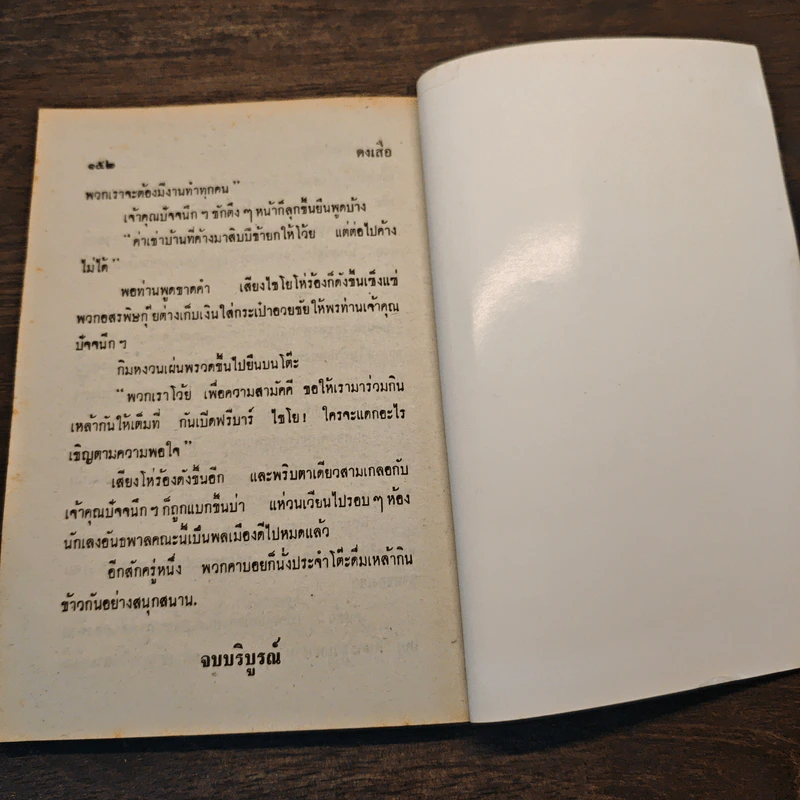 ๑๕๒ ดงเสือ
พวกเราจะต้องมีงานทำทุกคน”
เจ้าคุณปัจจนึก ฯ ชักตึง ๆ หน้าก็ลุกขึ้นยืนพูดบ้าง
“ค่าเช่าบ้านที่ค้างมาสิบปีข้ายกให้โว้ย แต่ต่อไปค้าง
ไม่ได้”
พอท่านพูดขาดคำ เสียงไชโยโห่ร้องก็ดังขึ้นเซ็งแซ่
พวกอสรพิษกุ๊ยต่างเก็บเงินใส่กระเป๋าอวยชัยให้พรท่านเจ้าคุณ
ปัจจนึก ฯ
กิมหงวนเผ่นพรวดขึ้นไปยืนบนโต๊ะ
“พวกเราโว้ย เพื่อความสามัคคี ขอให้เรามาร่วมกิน
เหล้ากันให้เต็มที่ กันเปิดฟรีบาร์ ไชโย! ใครจะแดกอะไร
เชิญตามความพอใจ”
เสียงโห่ร้องดังขึ้นอีก และพริบตาเดียวสามเกลอกับ
เจ้าคุณปัจจนึก ฯ ก็ถูกแบกขึ้นบ่า แห่วนเวียนไปรอบ ๆ ห้อง
นักเลงอันธพาลคณะนี้เป็นพลเมืองดีไปหมดแล้ว
อีกสักครู่หนึ่ง พวกคาบอยก็นั่งประจำโต๊ะดื่มเหล้ากิน
ข้าวกันอย่างสนุกสนาน.
จบบริบูรณ์